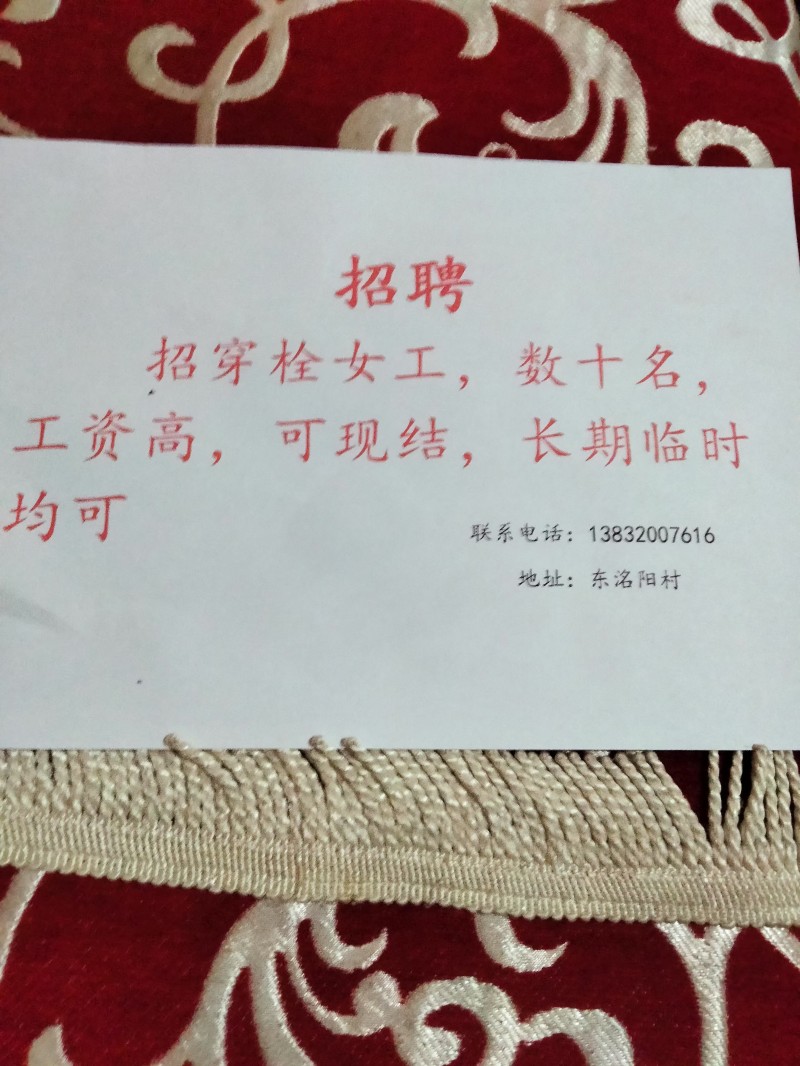 招聘
招穿栓女工，数十名，
工资高，可现结，长期临时
均可
联系电话：13832007616
地址：东洺阳村